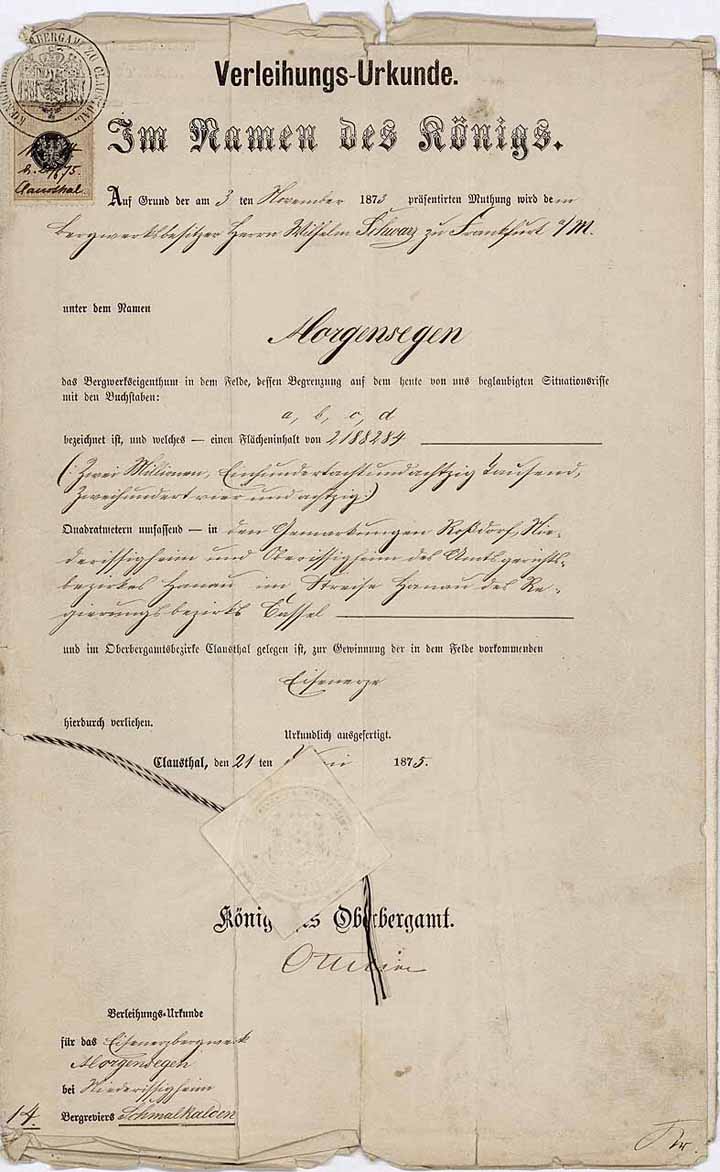 Verleihungs-Urkunde.
Im Namen des Königs.
Clausthal.
Auf Grund der am 3 ten November 1873 präsentirten Muthung wird dem
Bergwerksbesitzer Herrn Wilhelm Schwarz zu Frankfurt a/M.
unter dem Namen
Morgensegen
das Bergwerkseigenthum in dem Felde, dessen Begrenzung auf dem heute von uns beglaubigten Situationsrisse
mit den Buchstaben:
a, b, c, d
bezeichnet ist, und welches — einen Flächeninhalt von 2188284
(: Zwei Millionen, Einhundertachtundachtzig Tausend,
Zweihundert vier und achtzig :)
Quadratmetern umfassend — in den Gemarkungen Roßdorf, Nie-
derissigheim und Oberissigheim des Amtsgerichts-
bezirkes Hanau im Kreise Hanau des Re-
gierungsbezirks Cassel
und im Oberbergamtsbezirke Clausthal gelegen ist, zur Gewinnung der in dem Felde vorkommenden
Eisenerze
hierdurch verliehen.
Urkundlich ausgefertigt.
Clausthal, den 21 ten 1875.
Königliches Oberbergamt.
Verleihungs-Urkunde
für das Eisenerzbergwerk
Morgensegen
bei Niederissigheim
14. Bergreviers Schmalkalden